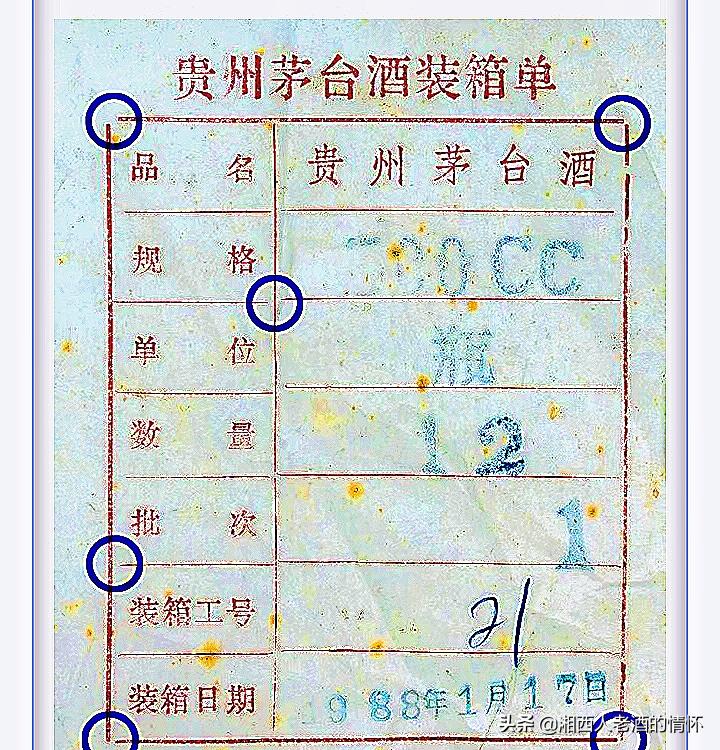 贵州茅台酒装箱单
品名 贵州茅台酒
规格 500CC
单位 瓶
数量 12
批次 1
装箱工号 21
装箱日期 1988年1月17日
头条 @湘西人老酒的情怀